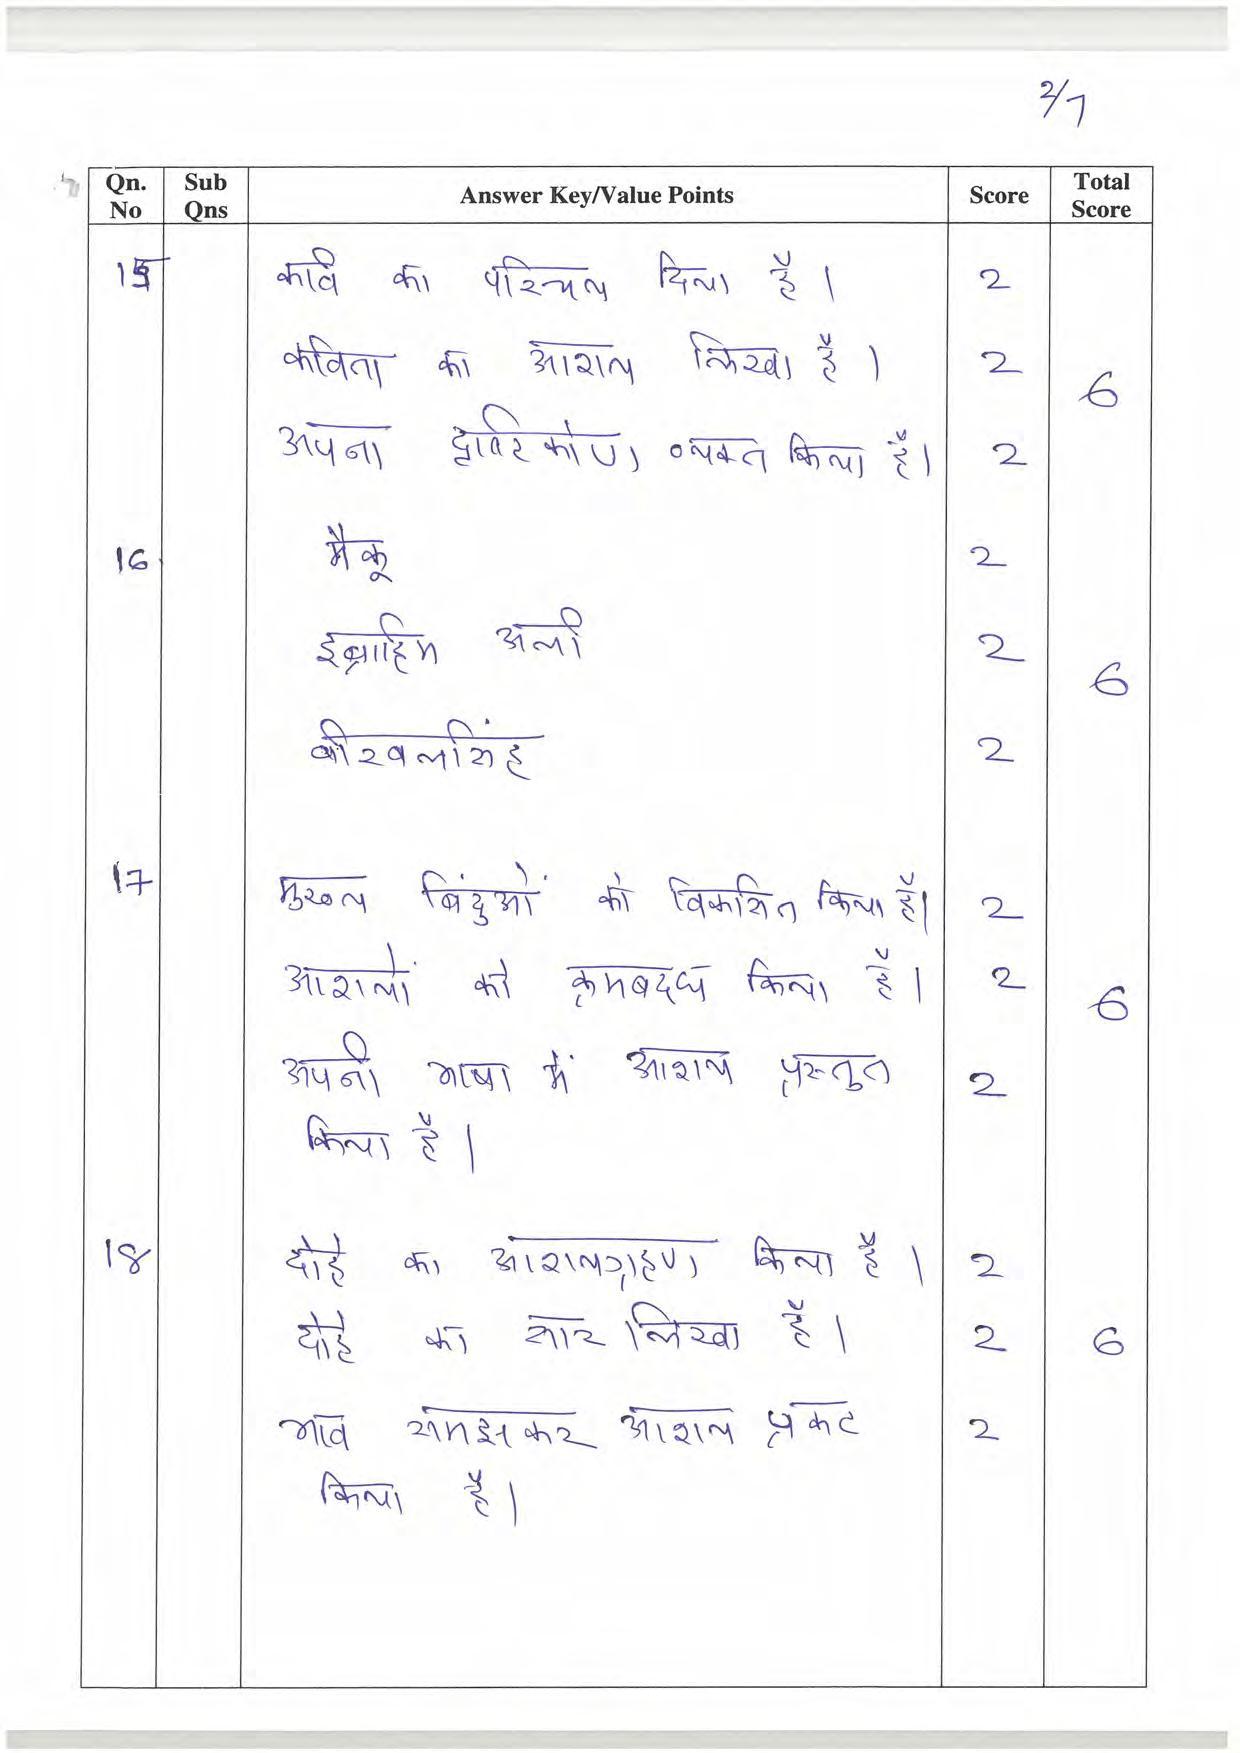 2/7
Qn. No Sub Qns Answer Key/Value Points Score Total Score
15 कवि का परिचय दिया है। 2
कविता का आशय लिखा है। 2 6
अपना दृष्टिकोण व्यक्त किया है। 2
16 मैकू 2
इब्राहिम अली 2 6
बीरबलसिंह 2
17 मुख्य बिंदुओं को विकसित किया है। 2
आशयों को क्रमबद्ध किया है। 2 6
अपनी भाषा में आशय प्रस्तुत 2
किया है।
18 दोहे का आशयग्रहण किया है। 2
दोहे का सार लिखा है। 2 6
भाव समझकर आशय प्रकट 2
किया है।